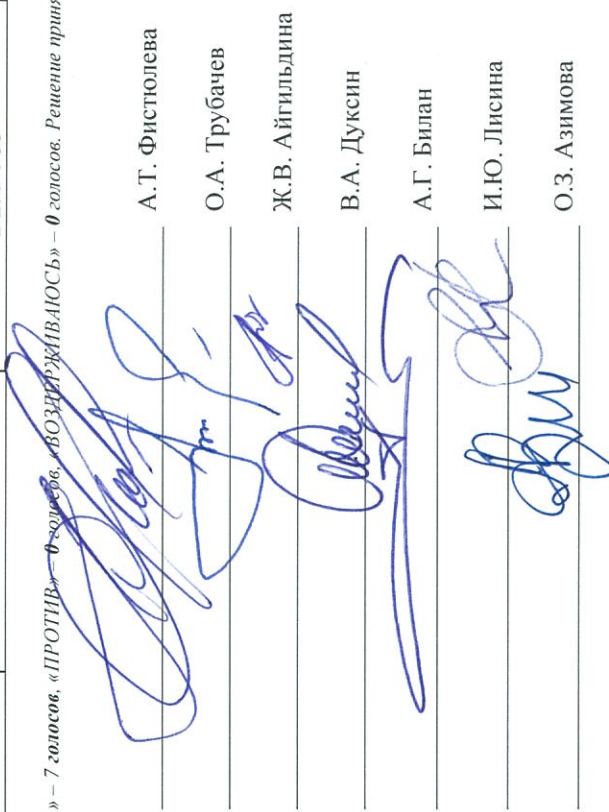 » – 7 голосов, «ПРОТИВ» – 0 голосов, «ВОЗДЕРЖИВАЮСЬ» – 0 голосов. Решение приня
А.Т. Фистюлева
О.А. Трубачев
Ж.В. Айгильдина
В.А. Дуксин
А.Г. Билан
И.Ю. Лисина
О.З. Азимова